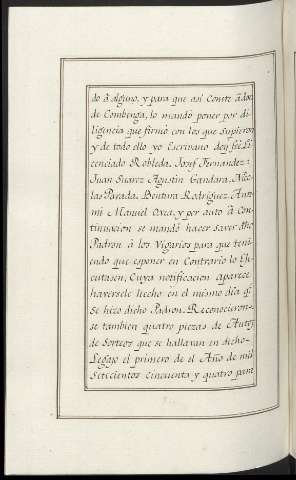 do â alguno, y para que asi Conste â don
de Combenga, lo mandó poner por di
ligencia que firmó con los que Supieron
y de todo ello yo Escrivano doy fee Li
cenciado Robleda. Josef Fernandez:
Juan Suarez Agustin Gandara. Nico
las Parada. Bentura Rodriguez. Ante
mi Manuel Oxea, y por auto â Con
tinuacion se mandó hacer saver dho
Padron â los Vigarios para que teni
endo que esponer en Contrario lo Eje
cutasen, Cuya notificacion aparece
haverseles hecho en el mismo dia qe
Se hizo dicho Padron. Reconocieron-
se tambien quatro piezas de Autos
de Sorteos que se hallavan en dicho
Legajo el primero de el Año de mil
Setecientos Cincuenta y quatro para